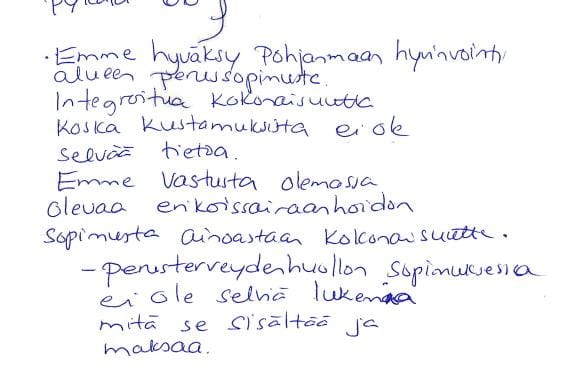 pykälä 66
· Emme hyväksy Pohjanmaan hyvinvointi
alueen perussopimusta.
Integroitua kokonaisuutta
koska kustannuksista ei ole
selvää tietoa.
Emme vastusta olemassa
olevaa erikoissairaanhoidon
sopimusta ainoastaan kokonaisuutta.
– perusterveydenhuollon sopimuksessa
ei ole selviä lukemia
mitä se sisältää ja
maksaa.